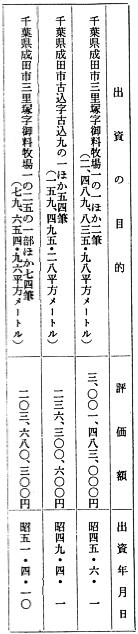 出資の目的
評価額
出資年月日
千葉県成田市三里塚字御料牧場一の二ほか二筆
(二、四八九、八三五・九八平方メートル)
三、〇〇一、四八三、〇〇〇円
昭四五・六・一
千葉県成田市古込字古込九の一ほか五四筆
(一五九、四九五・二八平方メートル)
二三六、三〇〇、六〇〇円
昭四九・四・一
千葉県成田市三里塚字御料牧場一の二五の一部ほか七四筆
(七九、六五四・九六平方メートル)
二〇三、六八〇、三〇〇円
昭五一・四・一〇